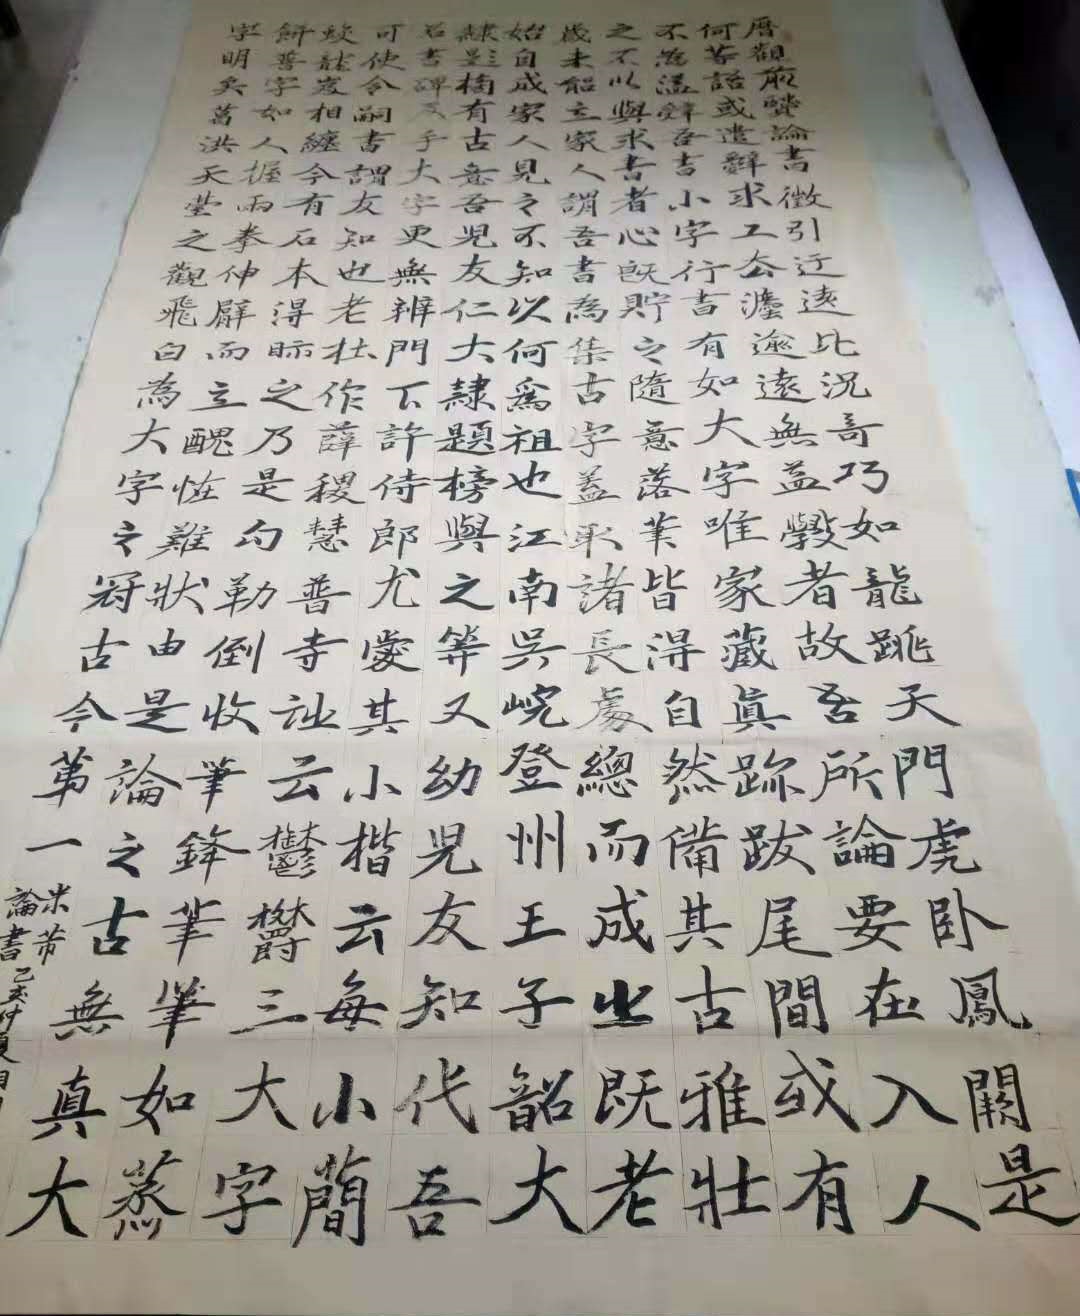 曆觀前賢論書徵引迂遠比況奇巧如龍跳天門虎卧鳳闕是
何等語或遣辭求工去灋逾遠無益學者故吾所論要在入人
不為溢辭吾書小字行書有如大字唯家藏真跡跋尾間或有
之不以與求書者心既貯之隨意落筆皆得自然備其古雅壯
歲未能立家人謂吾書為集古字蓋取諸長處總而成之既老
始自成家人見之不知以何為祖也江南吳皖登州王子韶大
隸有古意吾兒友仁大隸題榜與之等又幼兒友知代吾
名書碑及手大字更無辨門下許侍郎尤愛其小楷云每小簡
可使令嗣書謂友知也老杜作薛稷慧普寺詩云鬱鬱三大字
蛟龍岌相纏今有石本得視之乃是勾勒倒收筆鋒筆筆如蒸
餅普字如人握兩拳伸臂而立醜怪難狀由是論之古無真大
字明矣葛洪天臺之觀飛白為大字之冠古今第一
米芾
論書己亥仲夏